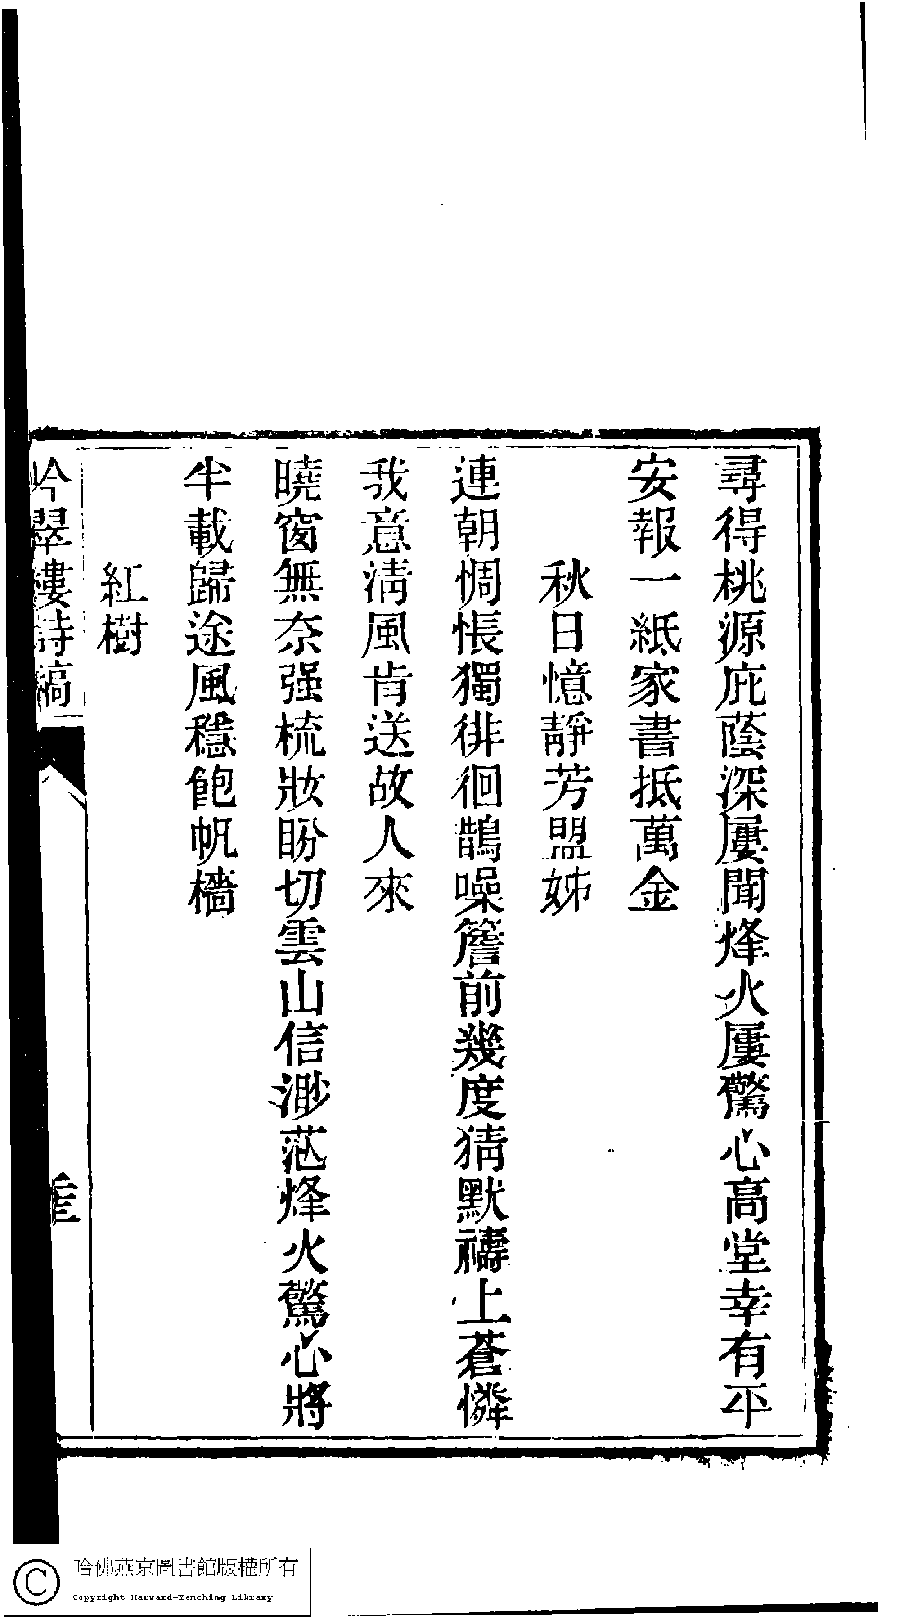 尋得桃源庇蔭深屢聞烽火屢驚心高堂幸有平
安報一紙家書抵萬金
秋日憶靜芳盟姊
連朝惆悵獨徘徊鵲噪簷前幾度猜默禱上蒼憐
我意淸風肯送故人來
曉窗無奈强梳妝盼切雲山信渺茫烽火驚心將
半載歸途風穩飽帆檣
紅樹
吟翠樓詩稿
哈佛燕京圖書館版權所有
Copyright Harvard-Yenching Library